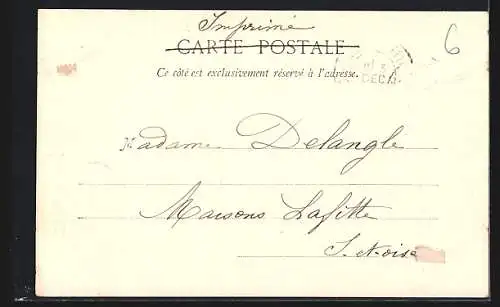 Imprimé
CARTE POSTALE
6
Ce côté est exclusivement réservé à l'adresse.
DEC
Madame Delangle
Maisons Lafitte
S. et Oise